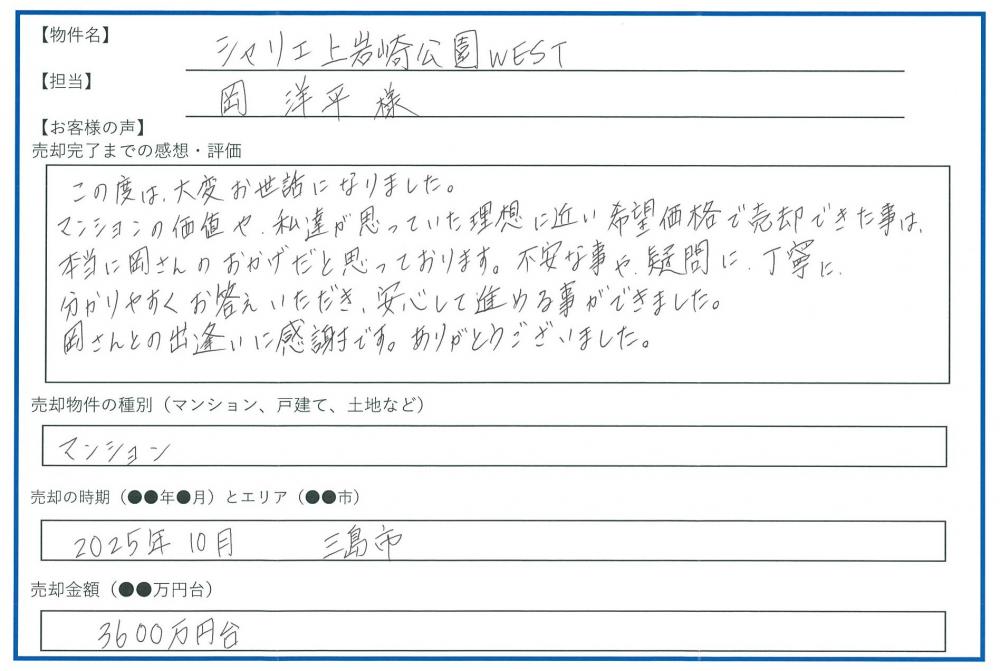 【物件名】
シャリエ上岩崎公園WEST
【担当】
岡 洋平 様
【お客様の声】
売却完了までの感想・評価
この度は、大変お世話になりました。
マンションの価値や、私達が思っていた理想に近い希望価格で売却できた事は、
本当に岡さんのおかげだと思っております。不安な事や、疑問に、丁寧に、
分かりやすくお答えいただき、安心して進める事ができました。
岡さんとの出逢いに感謝です。ありがとうございました。
売却物件の種別（マンション、戸建て、土地など）
マンション
売却の時期（●●年●月）とエリア（●●市）
2025年 10月 三島市
売却金額（●●万円台）
3600万円台